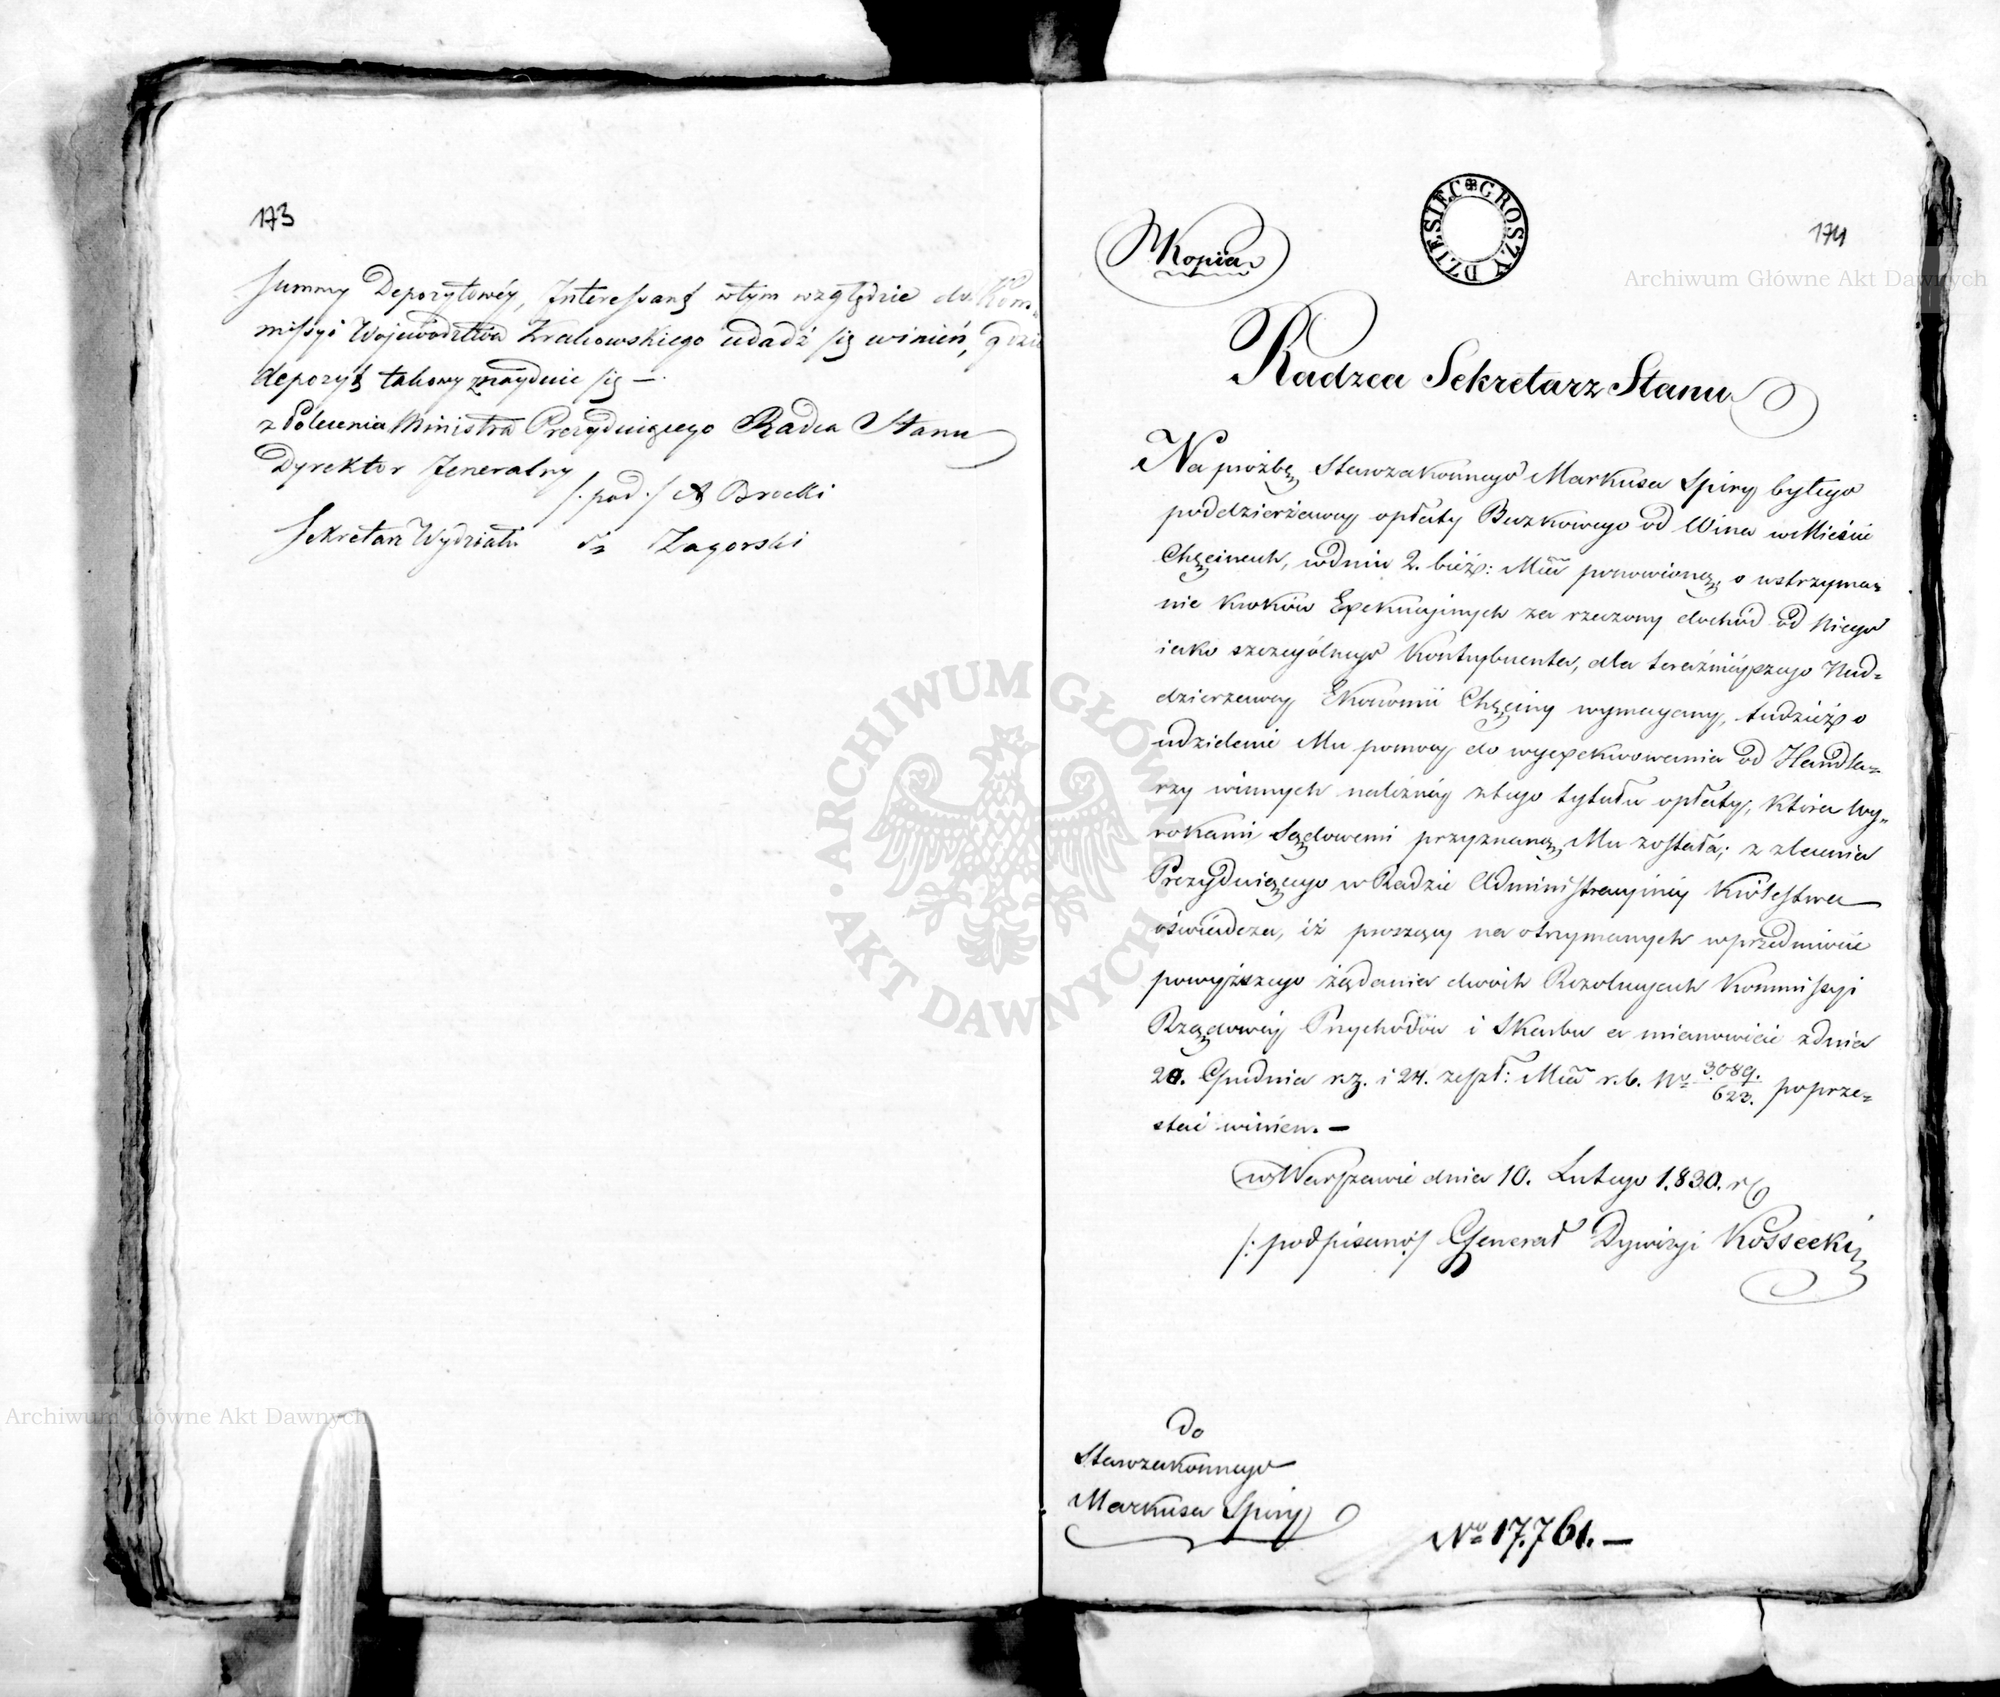 173
Summy Depozytowéy, Interessant wtym względzie do Kom-
missyi Województwa Krakowskiego udadź się winień, gdzie
depozyt takowy znayduie się —.
z Polecenia Ministra Prezyduiącego Radca Stanu
Dyrektor Jeneralny
/: pod :/ A Brocki
Sekretarz Wydziału Zagorski
Kopia
DZIESIĘC GROSZY
174
Radzca Sekretarz Stanu
Na prożbę Starozakonnego Markusa Spiry byłego
poddzierżawcy opłaty Buzkowego od Wina w Mieście
Chęcinach, wdniu 2. bież: Mca ponowioną, o wstrzyma=
nie kroków Exekucyinych za rzeczony dochód od Niego
iako szczególnego Kontrybuenta, dla teraźnieyszego Nad=
dzierzawcy Ekonomii Chęciny wymagany, tudzież o
udzielenie Mu pomocy do wyexekwowania od Handla=
rzy winnych należnéy ztego tytułu opłaty, która Wy=
rokami Sądowemi przyznaną Mu została; z zlecenia
Prezyduiącego w Radzie Administracyinéy Królestwa
oświadcza, iż proszący na otrzymanych wprzedmiocie
powyższego żądania dwóch Rezolucyach Kommissyi
Rządowéy Przychodów i Skarbu a mianowicie zdnia
20. Grudnia r.z. i 24. zeszł: Mca r.b. No 3089./623. poprze=
stać winien. —
w Warszawie dnia 10. Lutego 1.830. r
/: podpisano :/ Generał Dywizyi Kossecki
do
Starozakonnego
Markusa Spiry
No 17.761. —
Archiwum Główne Akt Dawnych
Archiwum Główne Akt Dawnych
ARCHIWUM GŁÓWNE · AKT DAWNYCH ·